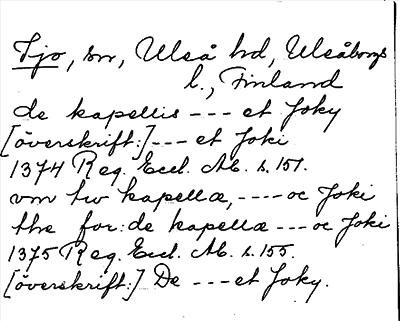 Ijo, sn, Uleå hd, Uleåborgs
l., Finland
de kapellis --- et Joky
[överskrift:] --- et Joki
1374 Reg. Eccl. Ab. s. 151.
vm tw kapellæ, ---- oc Joki
thr for: de kapellæ --- oc Joki
1375 Reg. Eccl. Ab. s. 155.
[överskrift:] De --- et Joky.